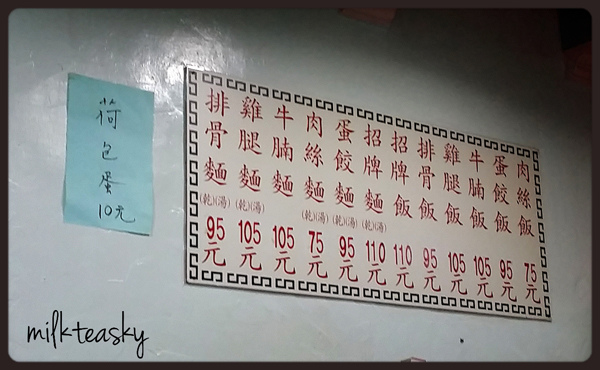 荷包蛋
10元
排骨麵
(乾)(湯)
95元
雞腿麵
(乾)(湯)
105元
牛腩麵
105元
肉絲麵
(乾)(湯)
75元
蛋餃麵
(乾)(湯)
95元
招牌麵
(乾)(湯)
110元
招牌飯
110元
排骨飯
95元
雞腿飯
105元
牛腩飯
105元
蛋餃飯
95元
肉絲飯
75元
milkteasky